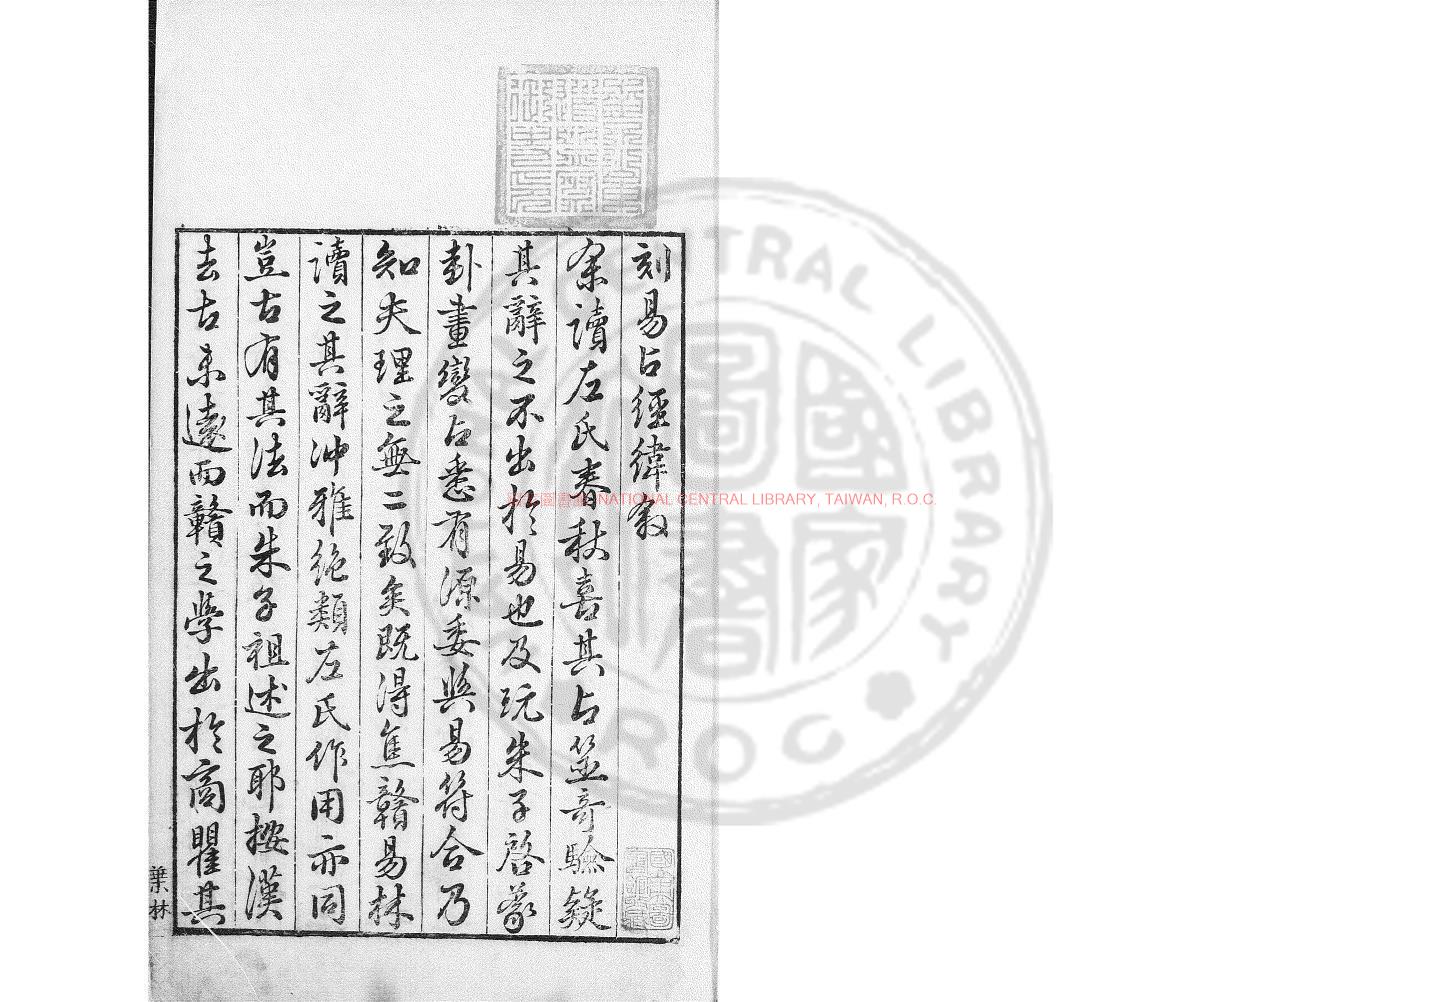 刻易占經緯敘
余讀左氏春秋喜其占筮奇驗疑
其辭之不出於易也及玩朱子啓蒙
卦畫變占悉有源委與易符合乃
知夫理之無二致矣既得焦贛易林
讀之其辭沖雅絕類左氏作用亦同
豈古有其法而朱子祖述之耶按漢
去古未遠而贛之學出於商瞿其
葉林
NATIONAL CENTRAL LIBRARY, TAIWAN, R.O.C.
CENTRAL LIBRARY
ROC
國家圖書